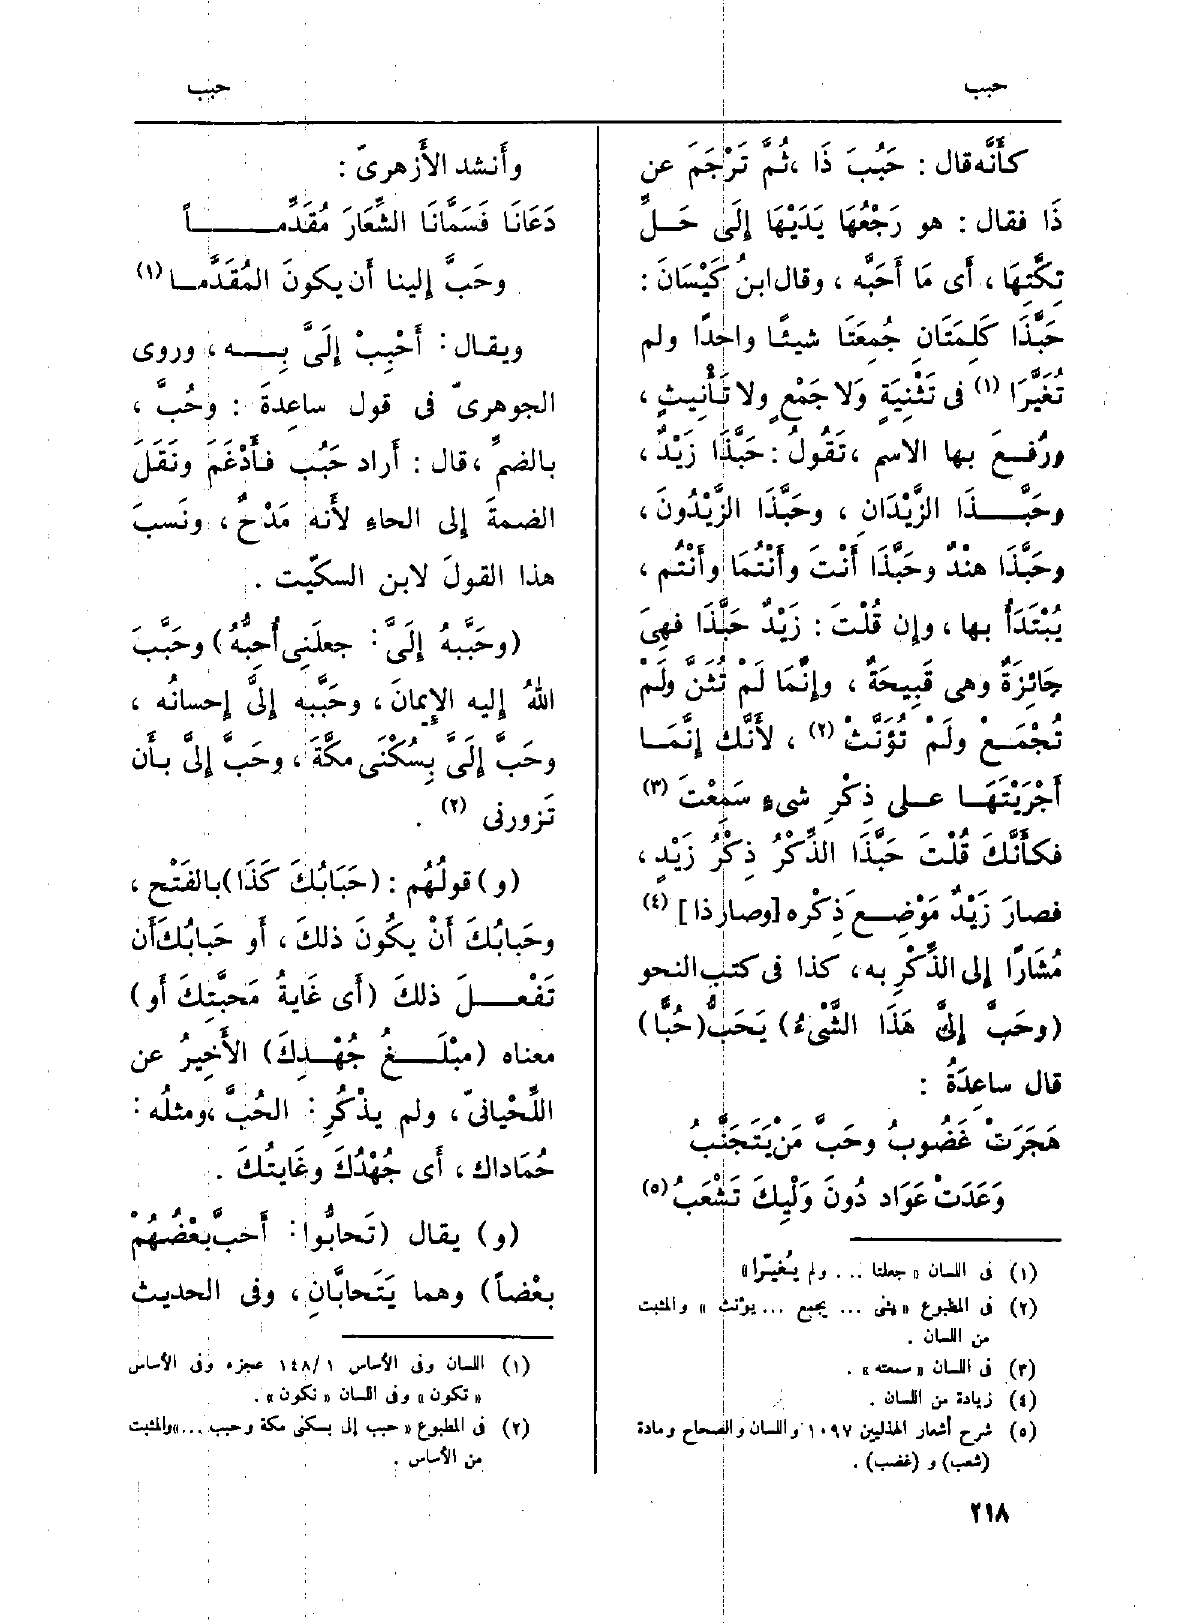 حبب
حبب
كأَنَّه قال : حَبُبَ ذَا ، ثُمَّ تَرْجَمَ عن
ذَا فقال : هو رَجْعُهَا يَدَيْهَا إِلَى حَلِّ
تِكَّتِهَا ، أَى مَا أَحَبَّه ، وقال ابنُ كَيْسَانَ :
حَبَّذَا كَلِمَتَانِ جُمِعَتَا شيئًا واحِدًا ولم
تُغَيَّرَا (١) فى تَثْنِيَةٍ وَلا جَمْعٍ ولا تَأْنِيثٍ ،
ورُفِعَ بها الاسم ، تَقُولُ : حَبَّذَا زَيْدٌ ،
وحَبَّذَا الزَّيْدَانِ ، وحَبَّذَا الزَّيْدُونَ ،
وحَبَّذَا هِنْدٌ وحَبَّذَا أَنْتَ وأَنْتُمَا وأَنْتُم ،
يُبْتَدَأُ بها ، وإن قُلْتَ : زَيْدٌ حَبَّذَا فهِىَ
جَائِزَةٌ وهى قَبِيحَةٌ ، وإِنَّمَا لَمْ تُثَنَّ ولَمْ
تُجْمَعْ ولَمْ تُؤَنَّثْ (٢) ، لأَنَّكَ إِنَّمَا
أَجْرَيْتَهَا على ذِكْرِ شىءٍ سَمِعْتَ (٣)
فكأَنَّكَ قُلْتَ حَبَّذَا الذِّكْرُ ذِكْرُ زَيْدٍ ،
فصارَ زَيْدٌ مَوْضِعَ ذِكْرِه [وصار ذا] (٤)
مُشَارًا إِلى الذِّكْرِ به ، كذا فى كتب النحو
(وحَبَّ إِلىَّ هَذَا الشَّىْءُ) يَحَبُّ (حُبًّا)
قال ساعِدَةُ :
هَجَرَتْ غَضُوبُ وحَبَّ مَنْ يَتَجَنَّبُ
وَعَدَتْ عَوَاد دُونَ وَلْيِكَ تَشْعَبُ (٥)
(١) فى اللسان « جعلتا ... ولم يُغيّرا »
(٢) فى المطبوع « يثنى ... يجمع ... يؤنث » والمثبت
من اللسان .
(٣) فى اللسان « سمعته » .
(٤) زيادة من اللسان .
(٥) شرح أشعار الهذليين ١٠٩٧ واللسان والصحاح ومادة
(شعب) و (غضب) .
وأَنشد الأَزهرىّ :
دَعَانَا فَسَمَّانَا الشِّعَارَ مُقَدِّمًا
وحَبَّ إِلينا أَن يكونَ المُقَدَّما (١)
ويقال : أَحْبِبْ إِلَىَّ بِه ، وروى
الجوهرىّ فى قول ساعِدةَ : وحُبَّ ،
بالضمِّ ، قال : أَراد حَبُب فأَدْغَمَ ونَقَلَ
الضمةَ إِلى الحاءِ لأَنه مَدْحٌ ، ونَسبَ
هذا القولَ لابن السكيّت .
(وحَبَّبهُ إِلَىَّ : جعلَنِى أُحِبُّهُ) وحَبَّبَ
اللهُ إِليه الإِيمانَ ، وحَبَّبه إِلىَّ إِحسانُه ،
وحَبَّ إِلَىَّ بِسُكْنَى مكَّةَ ، وحَبَّ إِلىَّ بأَن
تَزورنى (٢) .
(و) قولُهُم : (حَبَابُكَ كَذَا) بالفَتْح ،
وحَبابُكَ أَنْ يكُونَ ذلكَ ، أَو حَبابُكَ أَن
تَفْعلَ ذلكَ (أَى غَايةُ مَحبَّتِكَ أَو)
معناه (مبْلَغُ جُهْدِكَ) الأَخِيرُ عن
اللِّحْيانىّ ، ولم يذْكُرِ : الحُبَّ ، ومثلُه :
حُمَاداك ، أَى جُهْدُكَ وغَايتُكَ .
(و) يقال (تَحابُّوا : أَحبَّ بعْضُهُمْ
بعْضاً) وهما يَتَحابَّانِ ، وفى الحديث
(١) اللسان وفى الأساس ١٤٨/١ عجزه وفى الأساس
« تكون » وفى اللسان « نكون » .
(٢) فى المطبوع « حبب إلى بسكنى مكة وحبب ... » والمثبت
من الأساس .
٢١٨